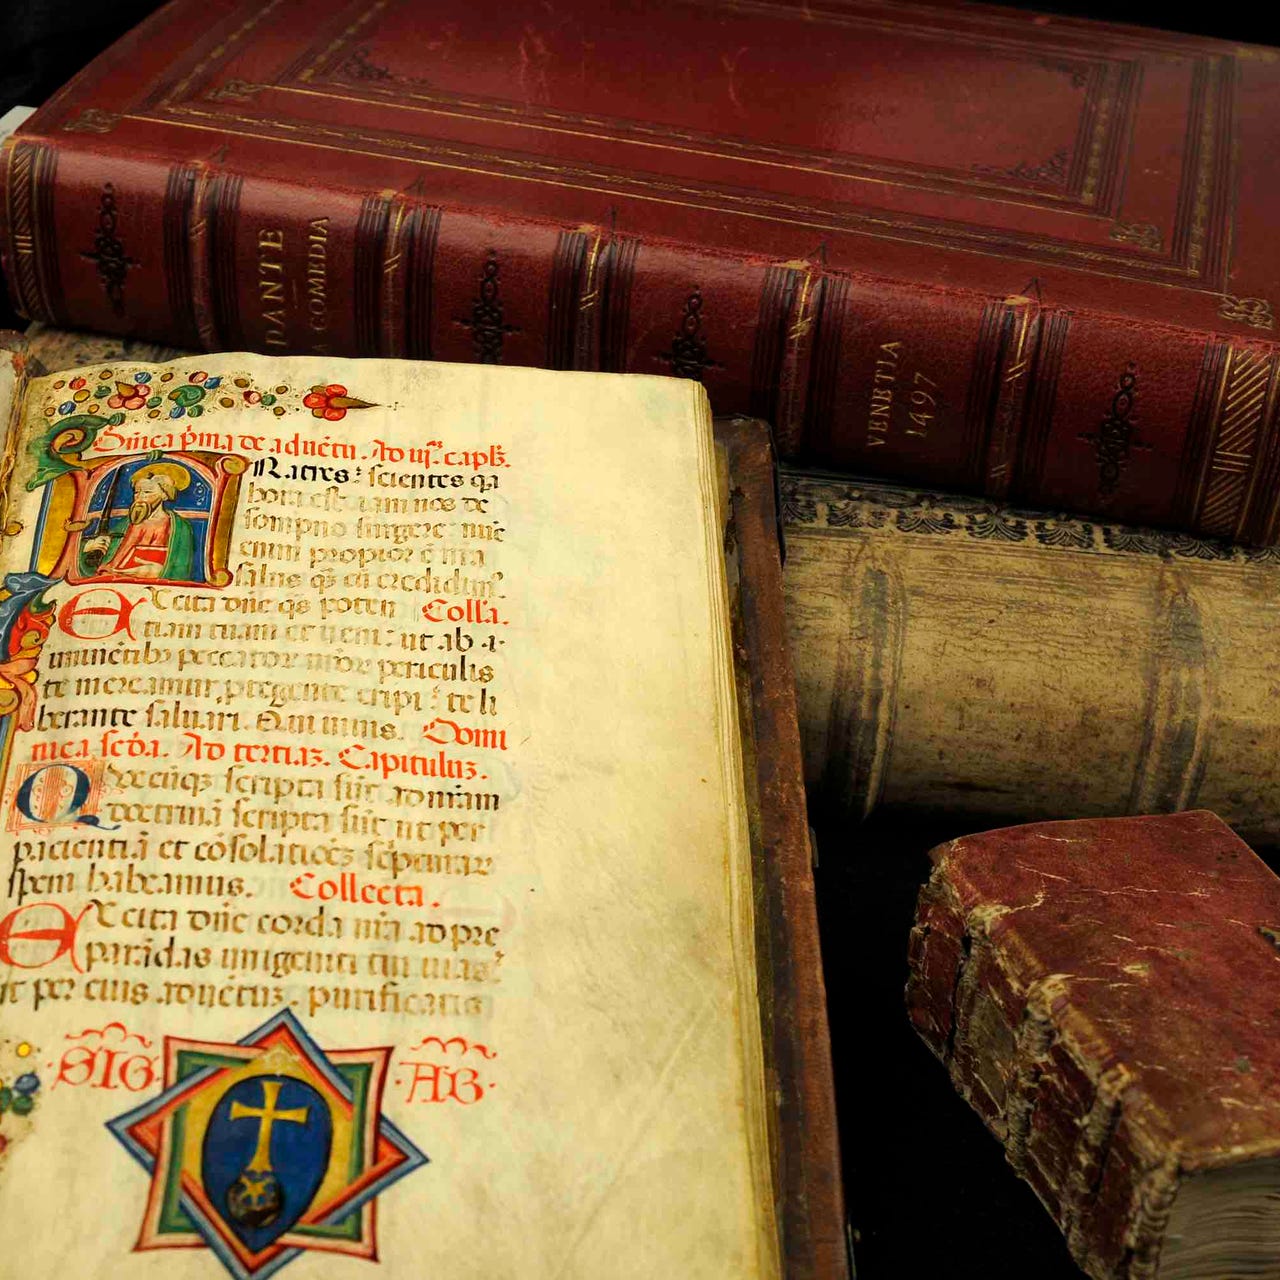 DANTE
COMEDIA
VENETIA
1497
Dñica p̄ma de aduētu. Ad ur̄. capl̄.
Ratres: scientes qa
hora est iam nos de
sompno surgere: nūc
enim propior ē nr̄a
salus q̄ cū credidim'.
Excita dñe q̄s poten Coll'a.
tiam tuam et ueni: ut ab i
minētib; peccator nr̄or periculis
te mereamur, ptegente eripi: te li
berante saluari. Qui uiuis. Domi
nica scd̄a. Ad tertiaz. Capituluz.
Quecūqz scripta sūt ad nr̄am
doctrinā scripta sūt ut per
pacientiā et cōsolatiōez scpturar
spem habeamus. Collecta.
Excita dñe corda nr̄a ad pre
parādas unigeniti tui uias:
ut per eius aduētuz. purificatis
SIG. AB.